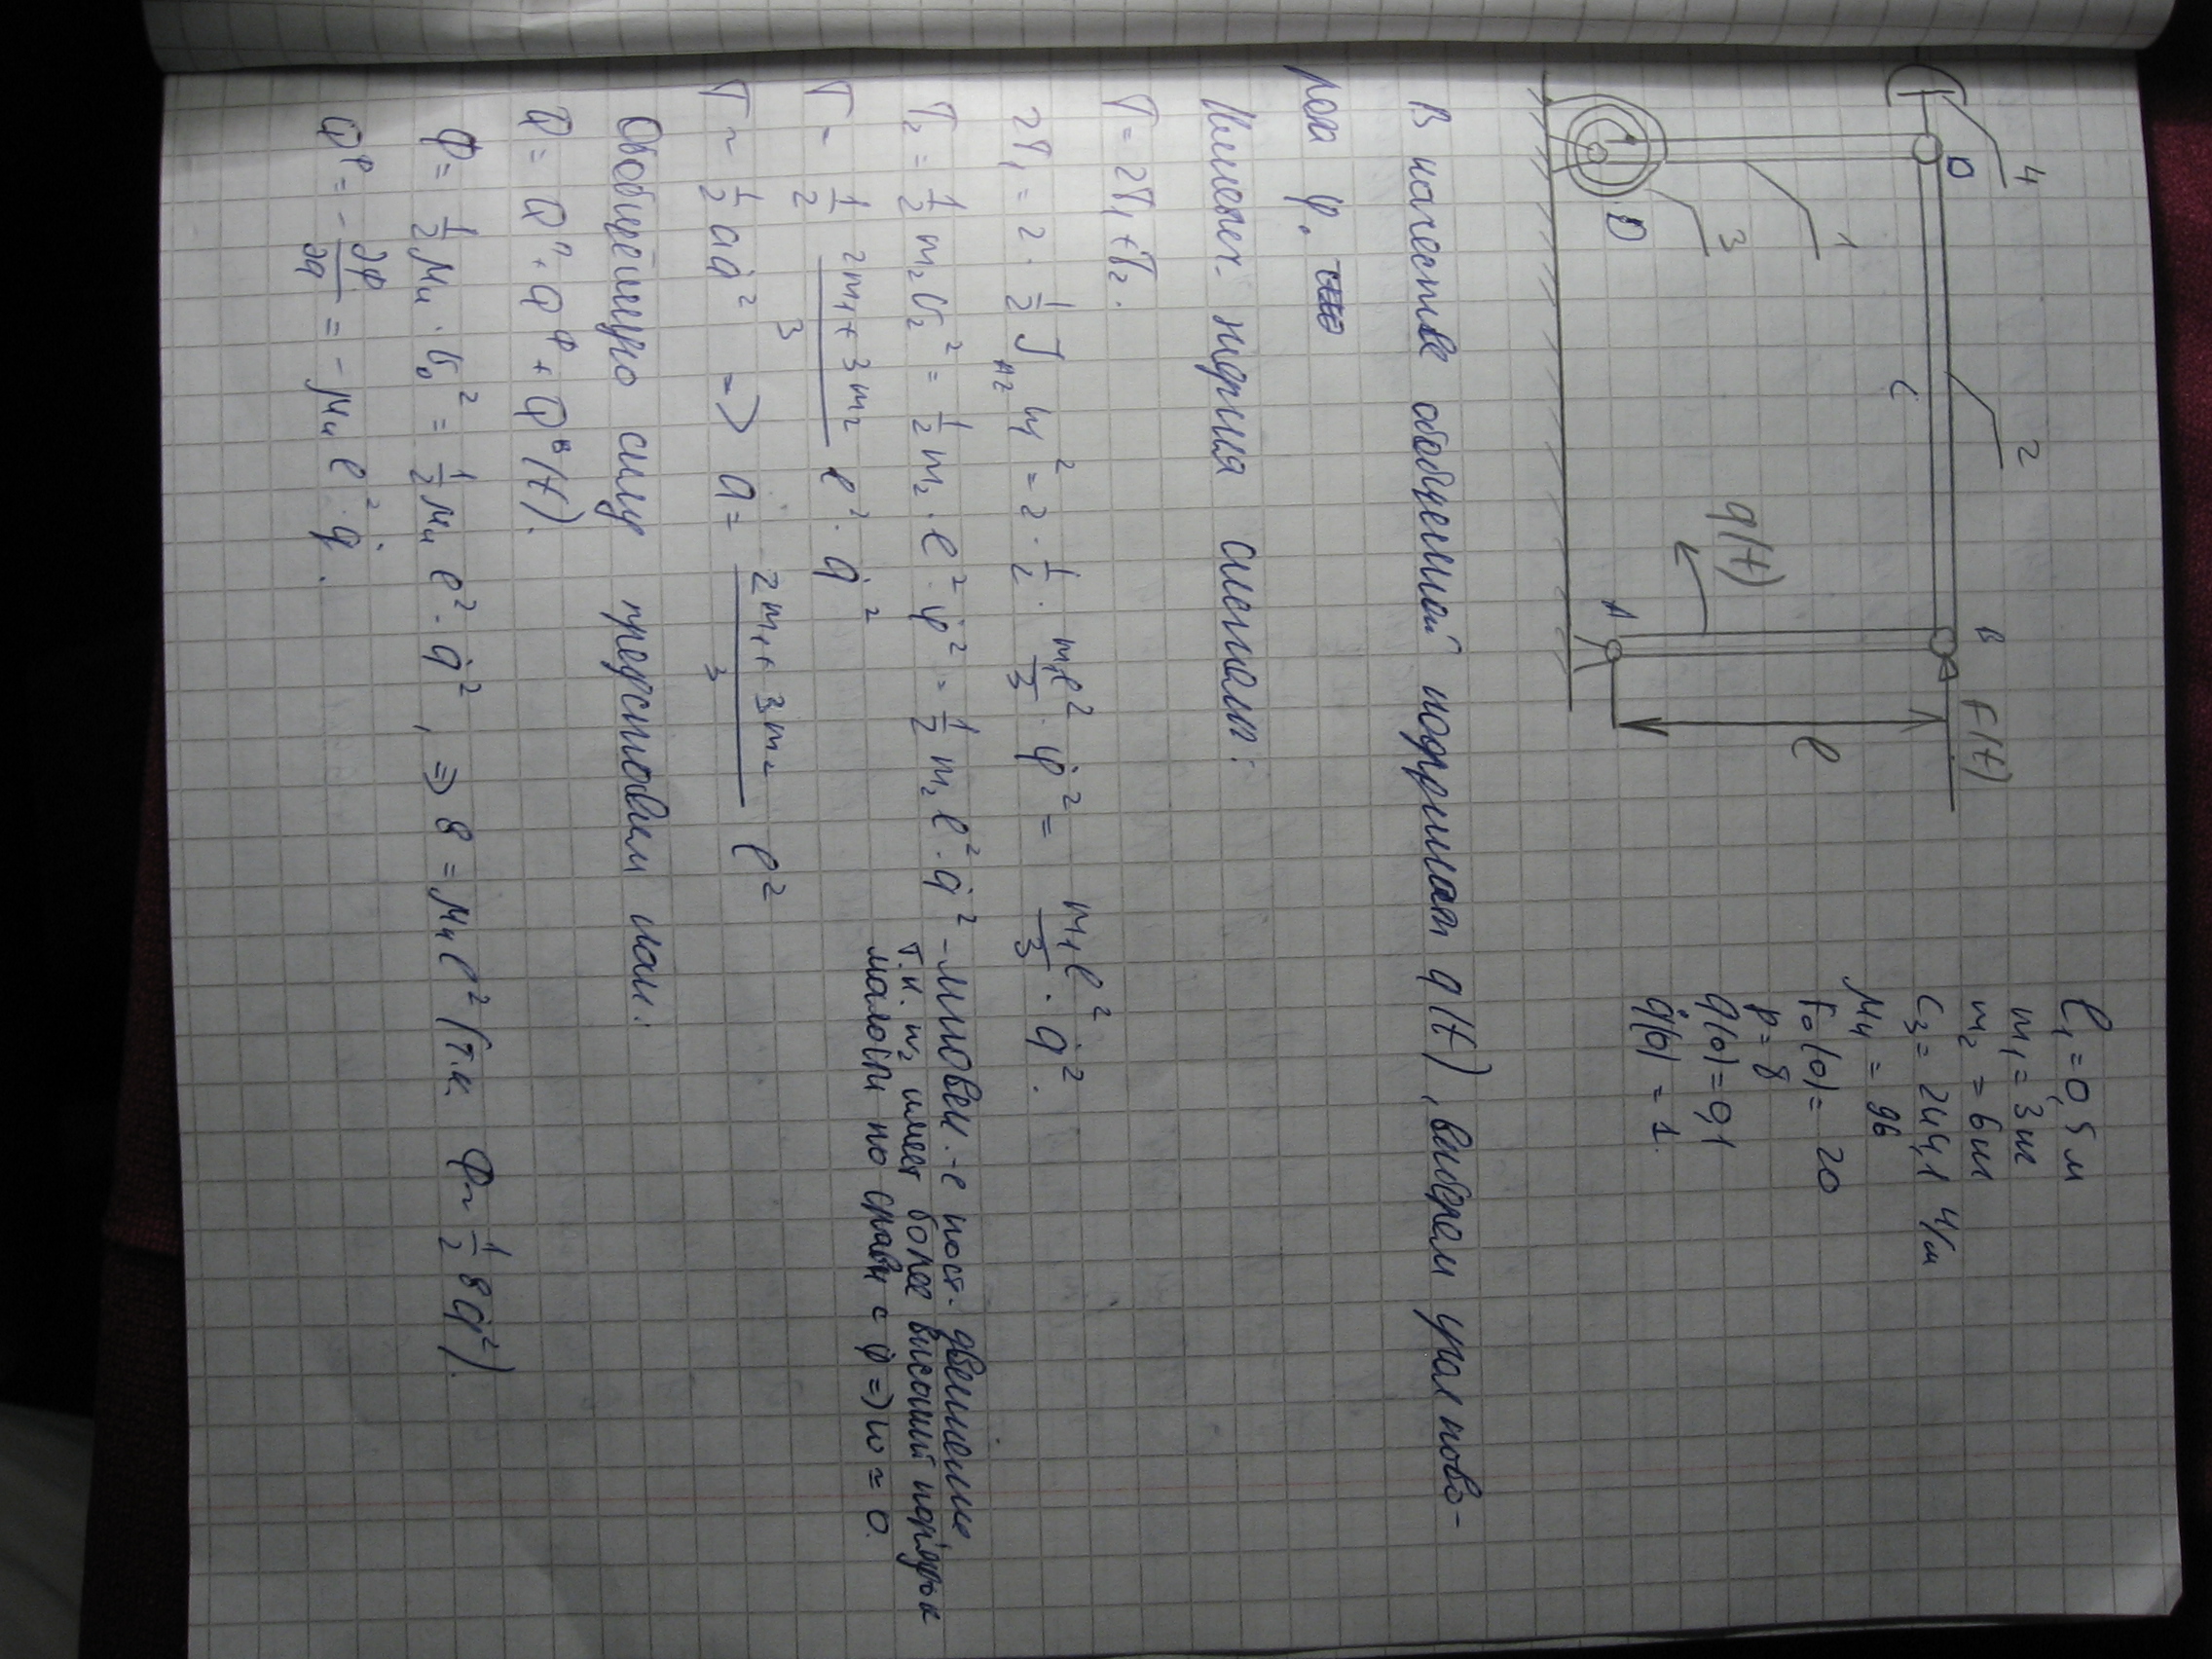 4
D
1
3
D
C
2
q(t)
A
B
F(t)
l
l₁ = 0,5 м
m₁ = 3 кг
m₂ = 6 кг
c₃ = 244,1 Н/м
μ₄ = 96
F₀(0) = 20
p = 8
q(0) = 0,1
q̇(0) = 1.
В качестве обобщенной координат q(t), выберем угал пово-
рота φ.
Кинетич. энергия системы:
T = 2T₁ + T₂.
2T₁ = 2 · 1/2 J φ̇² = 2 · 1/2 · m₁l²/3 · φ̇² = m₁l²/3 · q̇².
T₂ = 1/2 m₂ υ₂² = 1/2 m₂ · l² · φ̇² = 1/2 m₂ l² · q̇² – мгновен.-е пост. движение,
т.к. имеет более высокий порядок
малости по сравн с φ̇ => ω = 0.
T = 1/2 (2m₁ + 3m₂)/3 l² · q̇²
T = 1/2 a q̇² => a = (2m₁ + 3m₂)/3 l²
Обобщенную силу представим как:
Q = Qⁿ + Q^Φ + Qᴮ(t).
Φ = 1/2 μ₄ · υ₀² = 1/2 μ₄ l² · q̇², => в = μ₄ l² (т.к. Φ = 1/2 в q̇²).
Q^Φ = - ∂Φ/∂q̇ = - μ₄ l² · q̇.